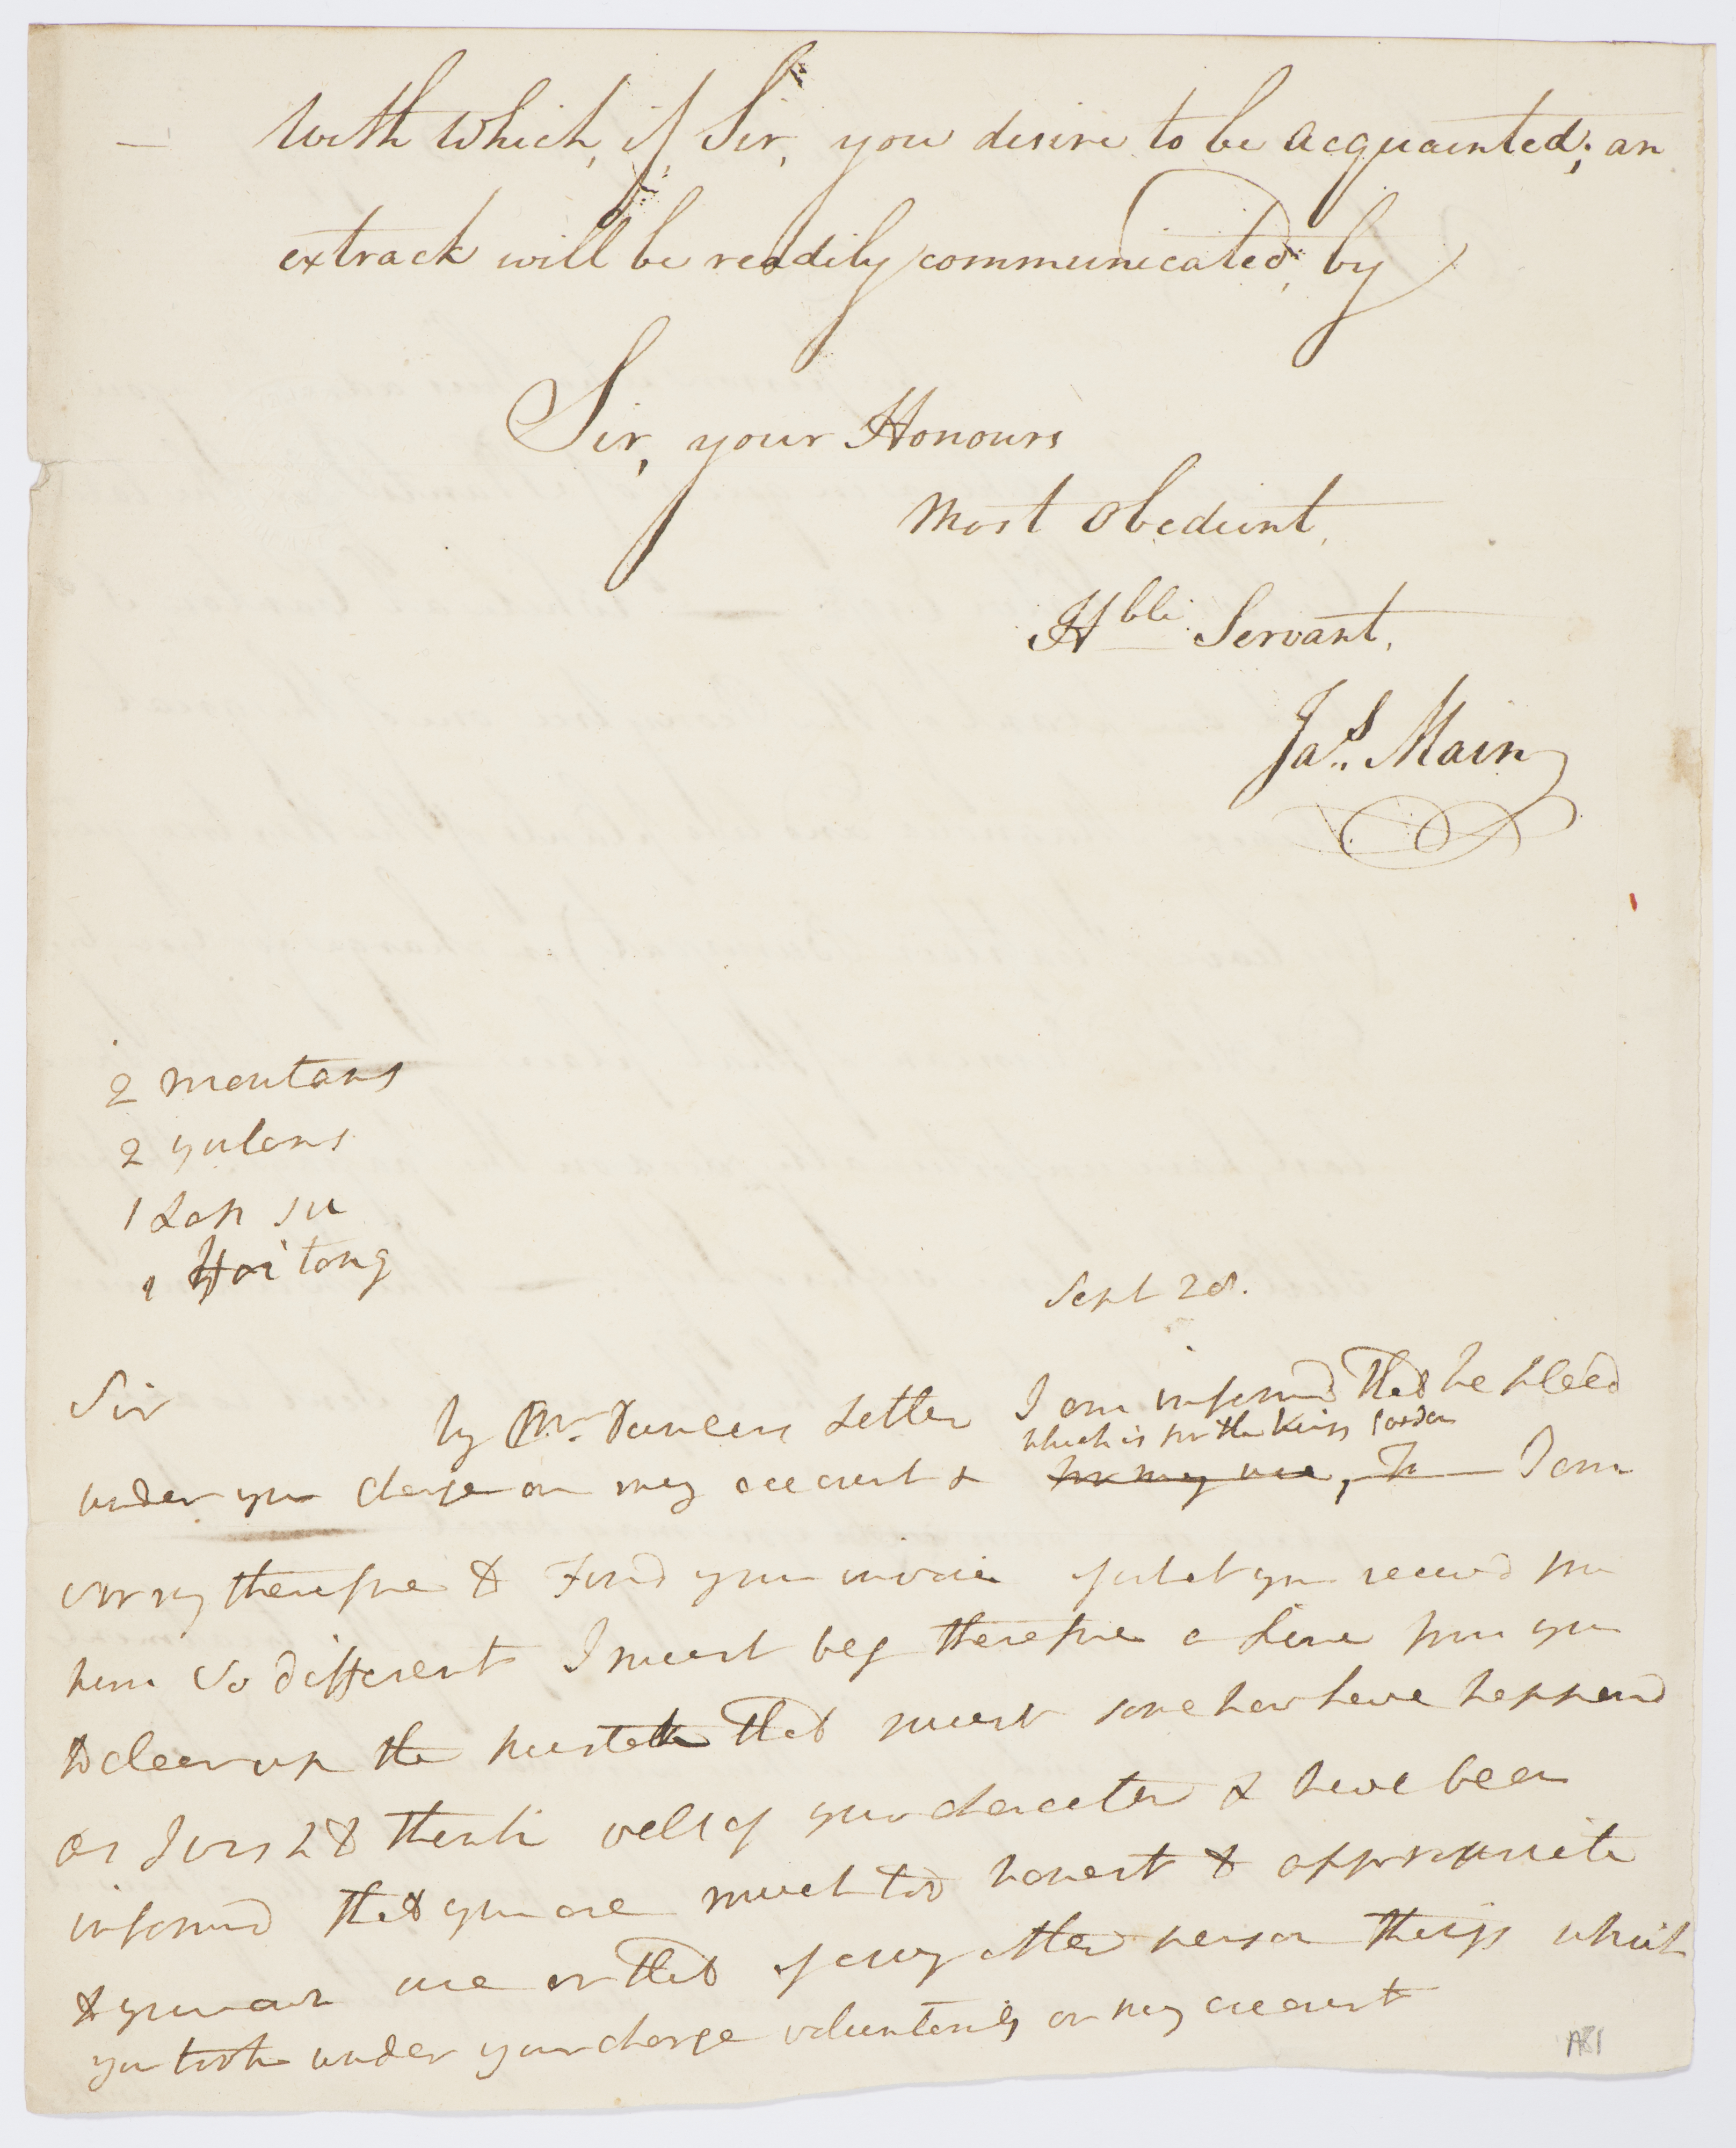 with which, if, Sir, you desire to be acquainted; an
extrack will be readily communicated, by
Sir, your Honours
most obedient,
Hble Servant,
Jas. Main
2 moutans
2 yulans
1 Lap su
1 Hai tong
Sept 28.
Sir
by Mr. Duncans Letter I am informd that he placd
which is for the Kings Garden
under your charge on my account & for my use, To I am
sorry therefore to Find your invoice of what you receivd from
him so different I must beg therefore a Line from you
to clear up the mistake that must some how have happend
as I wish to think well of your character & have been
informd that you are much too honest to appropriate
to your own use or that of any other person things which
you took under your charge voluntarily on my account
A81